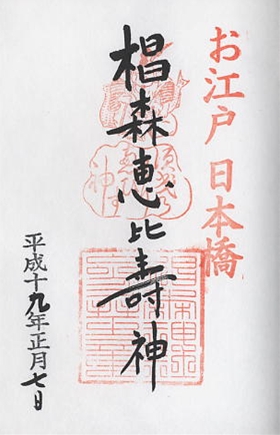 お江戸 日本橋
椙森恵比壽神
平成十九年正月七日